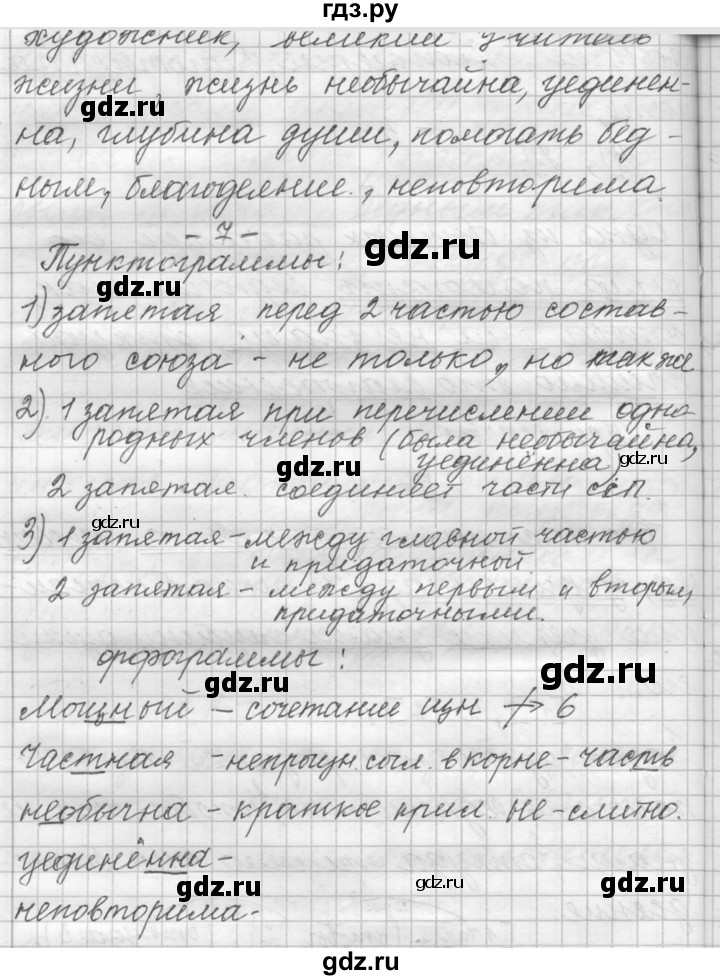 гдз.ру
художник, великий учитель
жизни, жизнь необычайна, уединен-
на, глубина души, помогать бед-
ным, благодеяние, неповторима.
- 7 -
Пунктограммы:
1) запятая перед 2 частью состав-
ного союза - не только, но также
2) 1 запятая при перечислении одно
родных членов (была необычайна,
уединённа)
2 запятая соединяет части ССП.
3) 1 запятая - между главной частью
и придаточной.
2 запятая - между первым и вторым
придаточными.
орфограммы:
Мощный - сочетании щн 6
Частная - непроизн. согл. в корне - часть
необычна - краткое прил. НЕ-слитно.
уединённа -
неповторима -
gdz.ru
gdz.ru
gdz.ru
gdz.ru
gdz.ru
gdz.ru
gdz.ru
gdz.ru
gdz.ru
gdz.ru
gdz.ru
gdz.ru
gdz.ru